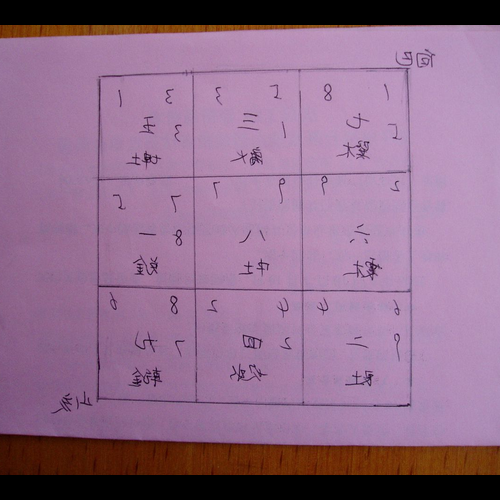 向巳
1 8 5 3 3 1
七 三 五
5 1 3
巽木 離火 坤土
2 9 9 7 7 5
六 八 一 8
震木 中土 兑金
6 4 4 2 8 6
二 四 九
9 2 7
艮土 坎水 乾金
亥